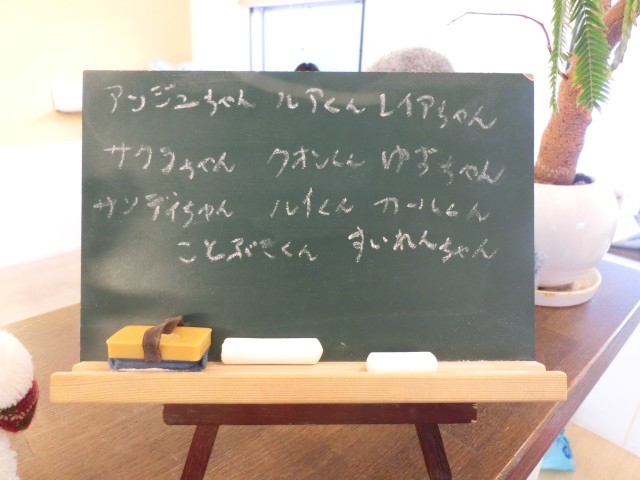 アンジュちゃん ルアくん レイアちゃん
サクラちゃん クオンくん ゆずちゃん
サンディちゃん ルイくん カールくん
ことぶきくん すいれんちゃん